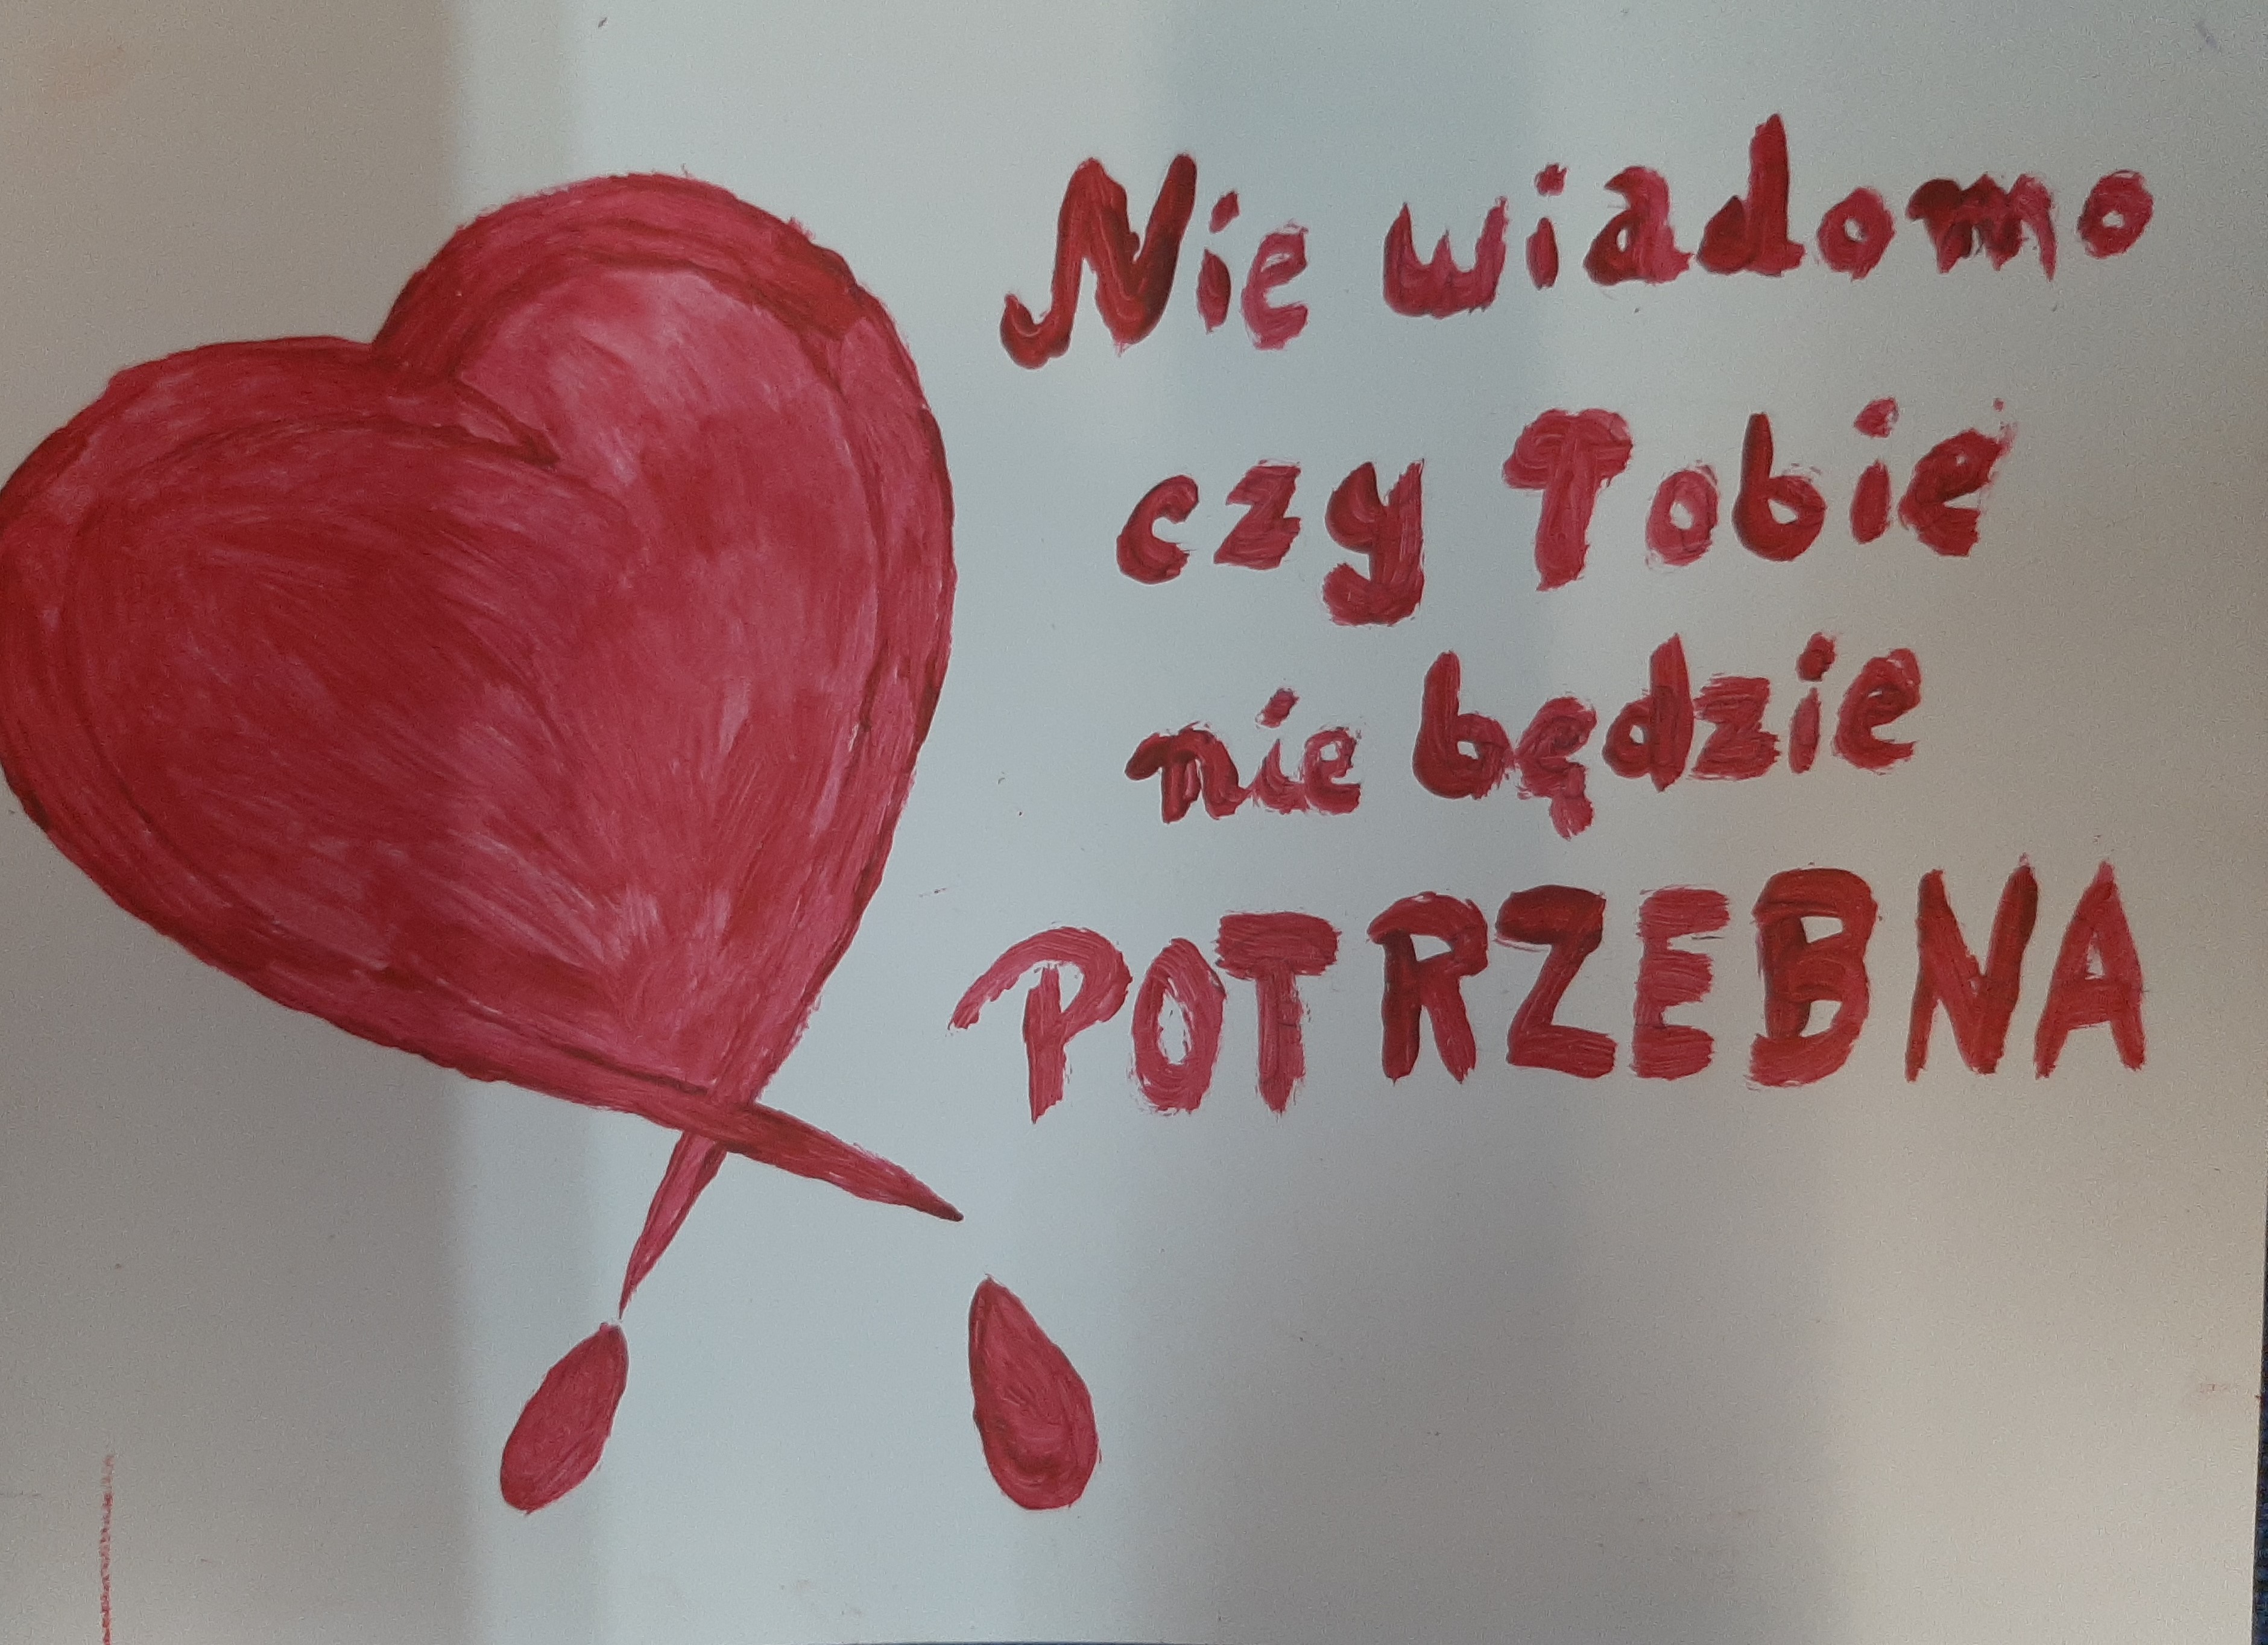 Nie wiadomo
czy Tobie
nie będzie
POTRZEBNA